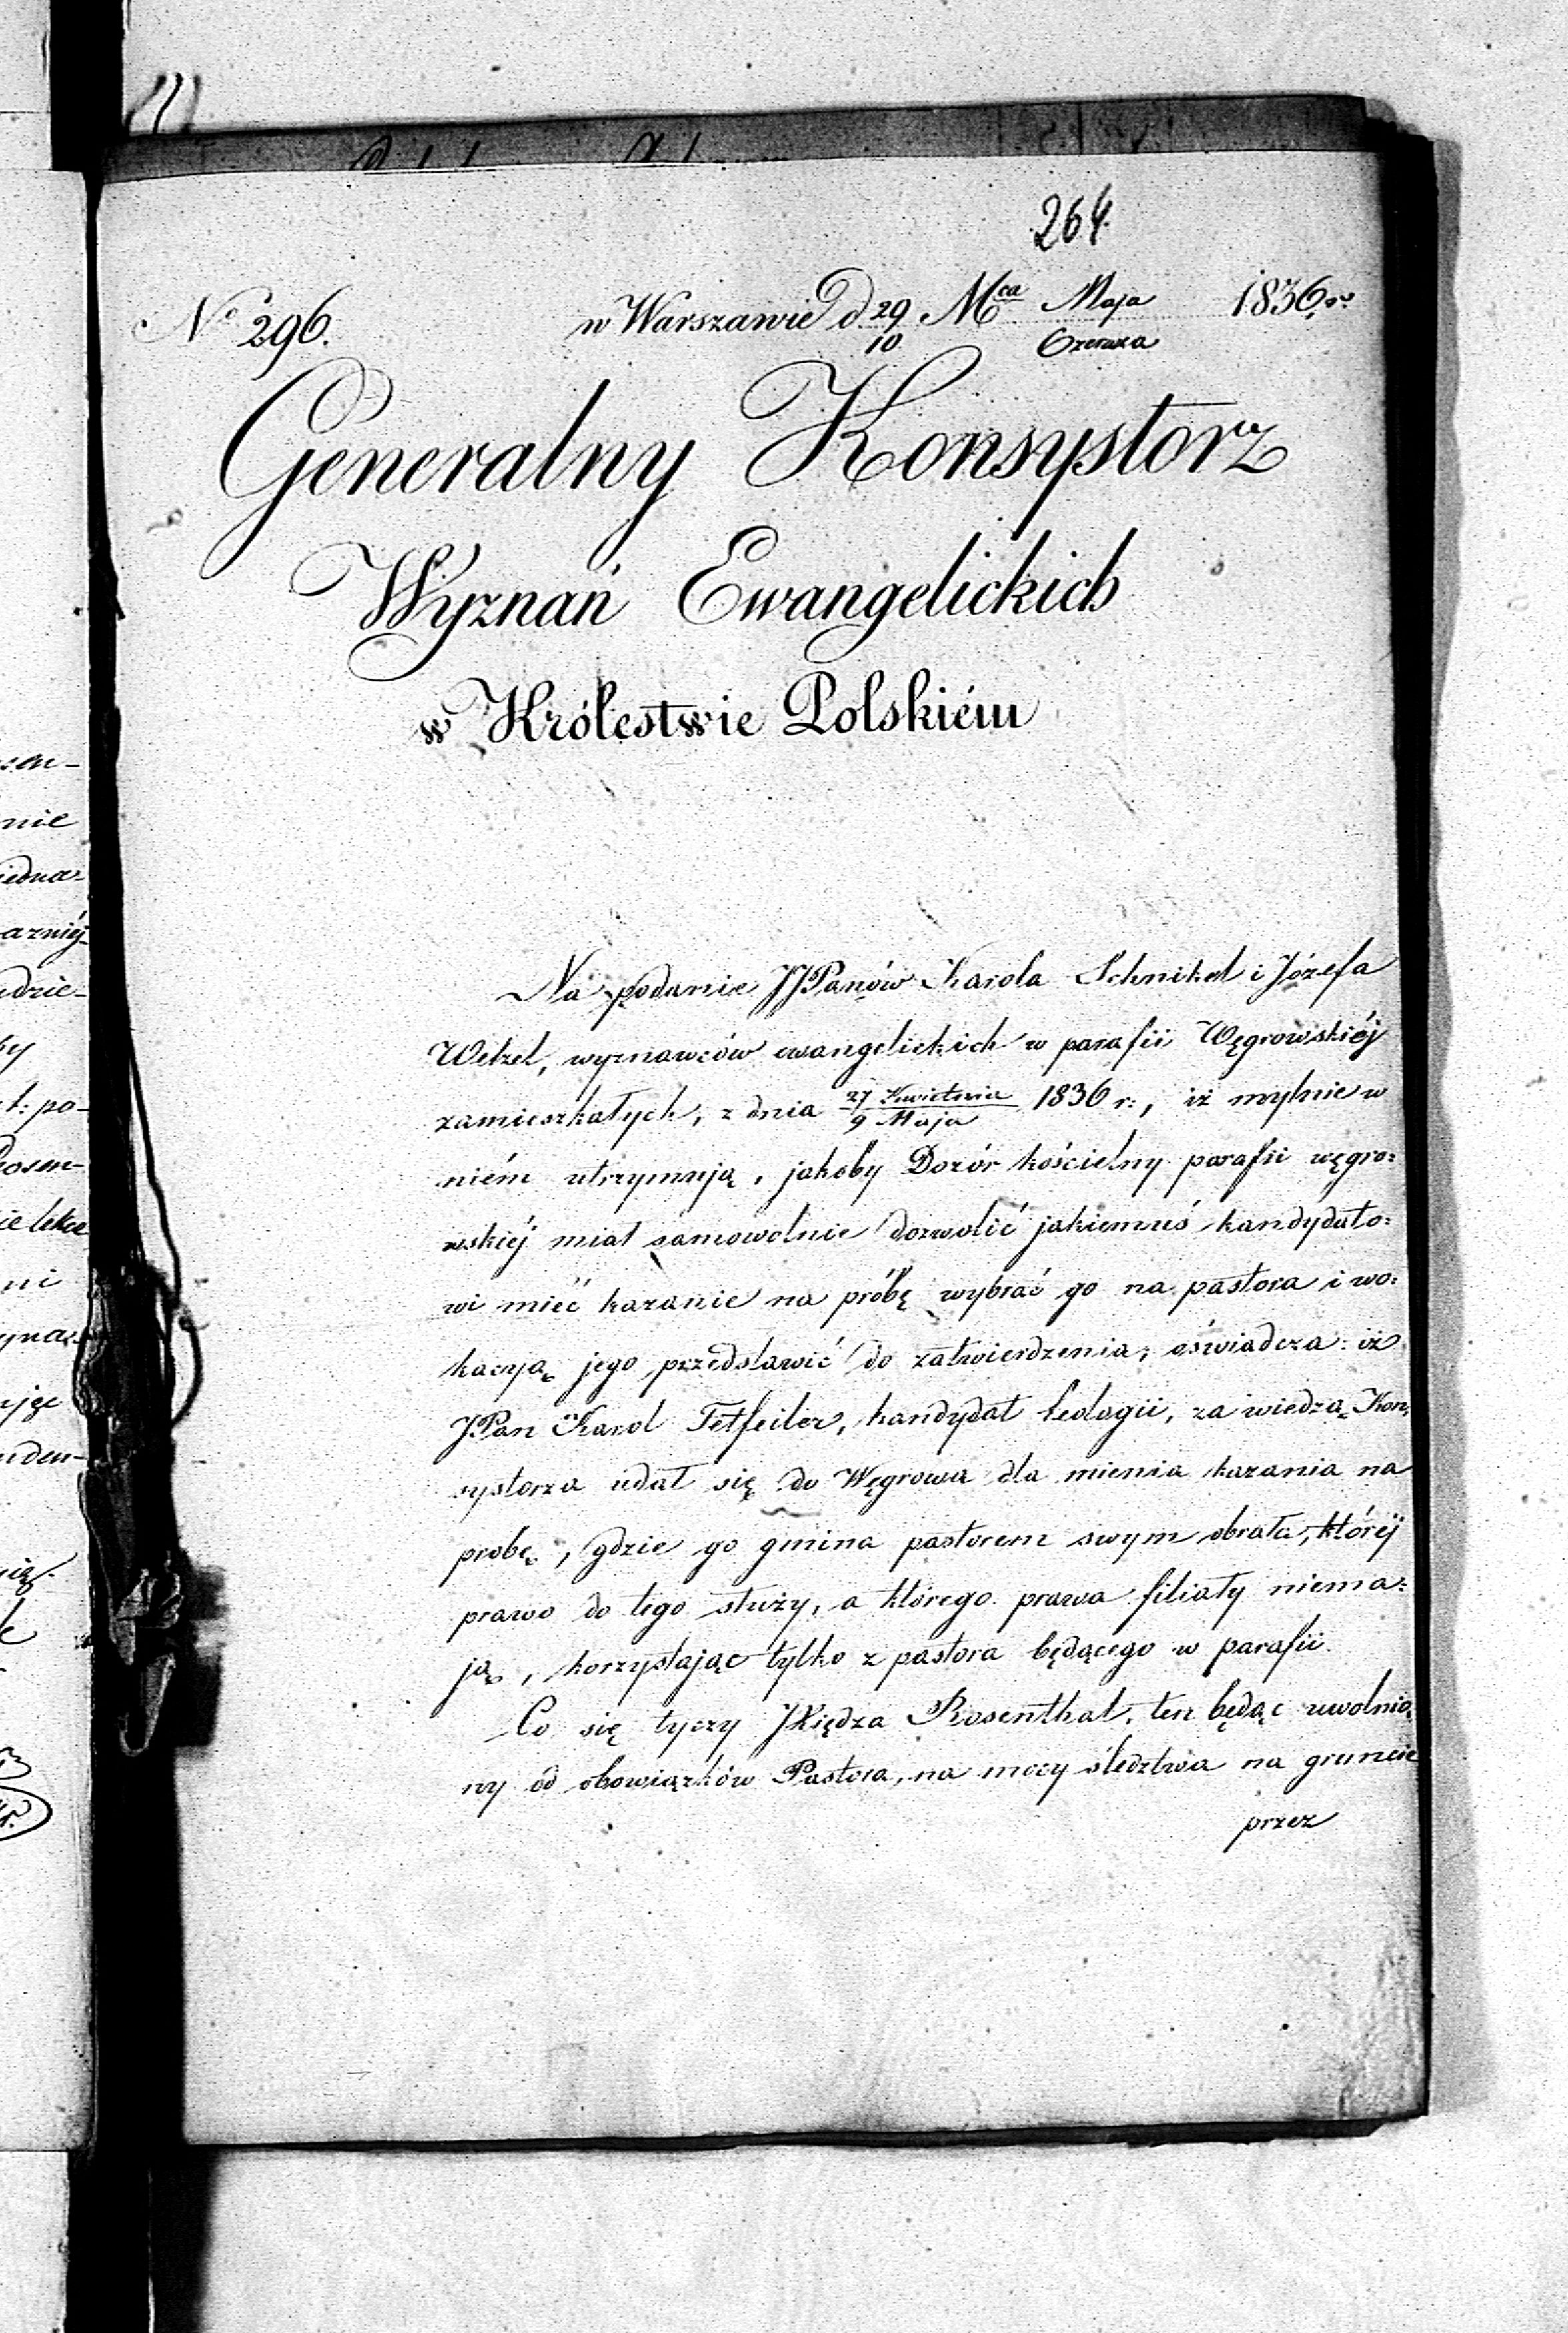 264.
No 296. w Warszawie d 29 Mca Maja 1836 ro
10 Czerwca
Generalny Konsystorz
Wyznań Ewangelickich
w Królestwie Polskiém
Na podanie JJPanów Karola Schnikel i Józefa
Wetzel, wyznawców ewangelickich w parafii Węgrowskiéj
zamieszkałych, z dnia 27 Kwietnia 1836 r:, iż mylnie w
9 Maja
niém utrzymują, jakoby Dozór kościelny parafii węgro:
wskiéj miał samowolnie dozwolić jakiemuś kandydato:
wi mieć kazanie na próbę wybrać go na pastora i wo:
kacyją jego przedstawić do zatwierdzenia; oświadcza: iż
JPan Karol Tetfeiler, kandydat teologii, za wiedzą Kon,
systorza udał się do Węgrowa dla mienia kazania na
probę, gdzie go gmina pastorem swym obrała, któréj
prawo do tego służy, a którego prawa filiały niema:
ją, korzystając tylko z pastora będącego w parafii.
Co się tyczy JXiędza Rosenthal, ten będąc uwolnio,
ny od obowiązków Pastora, na mocy śledztwa na gruncie
przez
sen-
nie
iedna-
azniéj-
dzie-
t: po-
Rosen-
ie lekce
ni
uden-